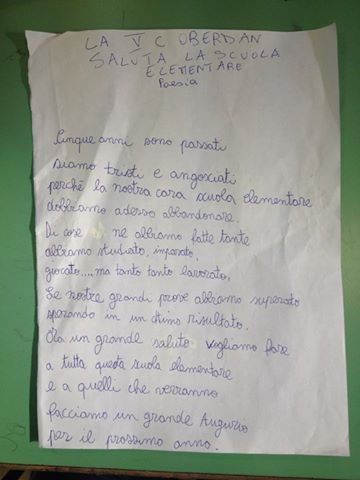 LA V C OBERDAN
SALUTA LA SCUOLA
ELEMENTARE
Poesia
Cinque anni sono passati
siamo tristi e angosciati
perché la nostra cara scuola elementare
dobbiamo adesso abbandonare.
Di cose ne abbiamo fatte tante
abbiamo studiato, imparato,
giocato....ma tanto tanto lavorato,
Le nostre grandi prove abbiamo superato
sperando in un ottimo risultato.
Ora un grande saluto vogliamo fare
a tutta questa scuola elementare
e a quelli che verranno
facciamo un grande Augurio
per il prossimo anno.